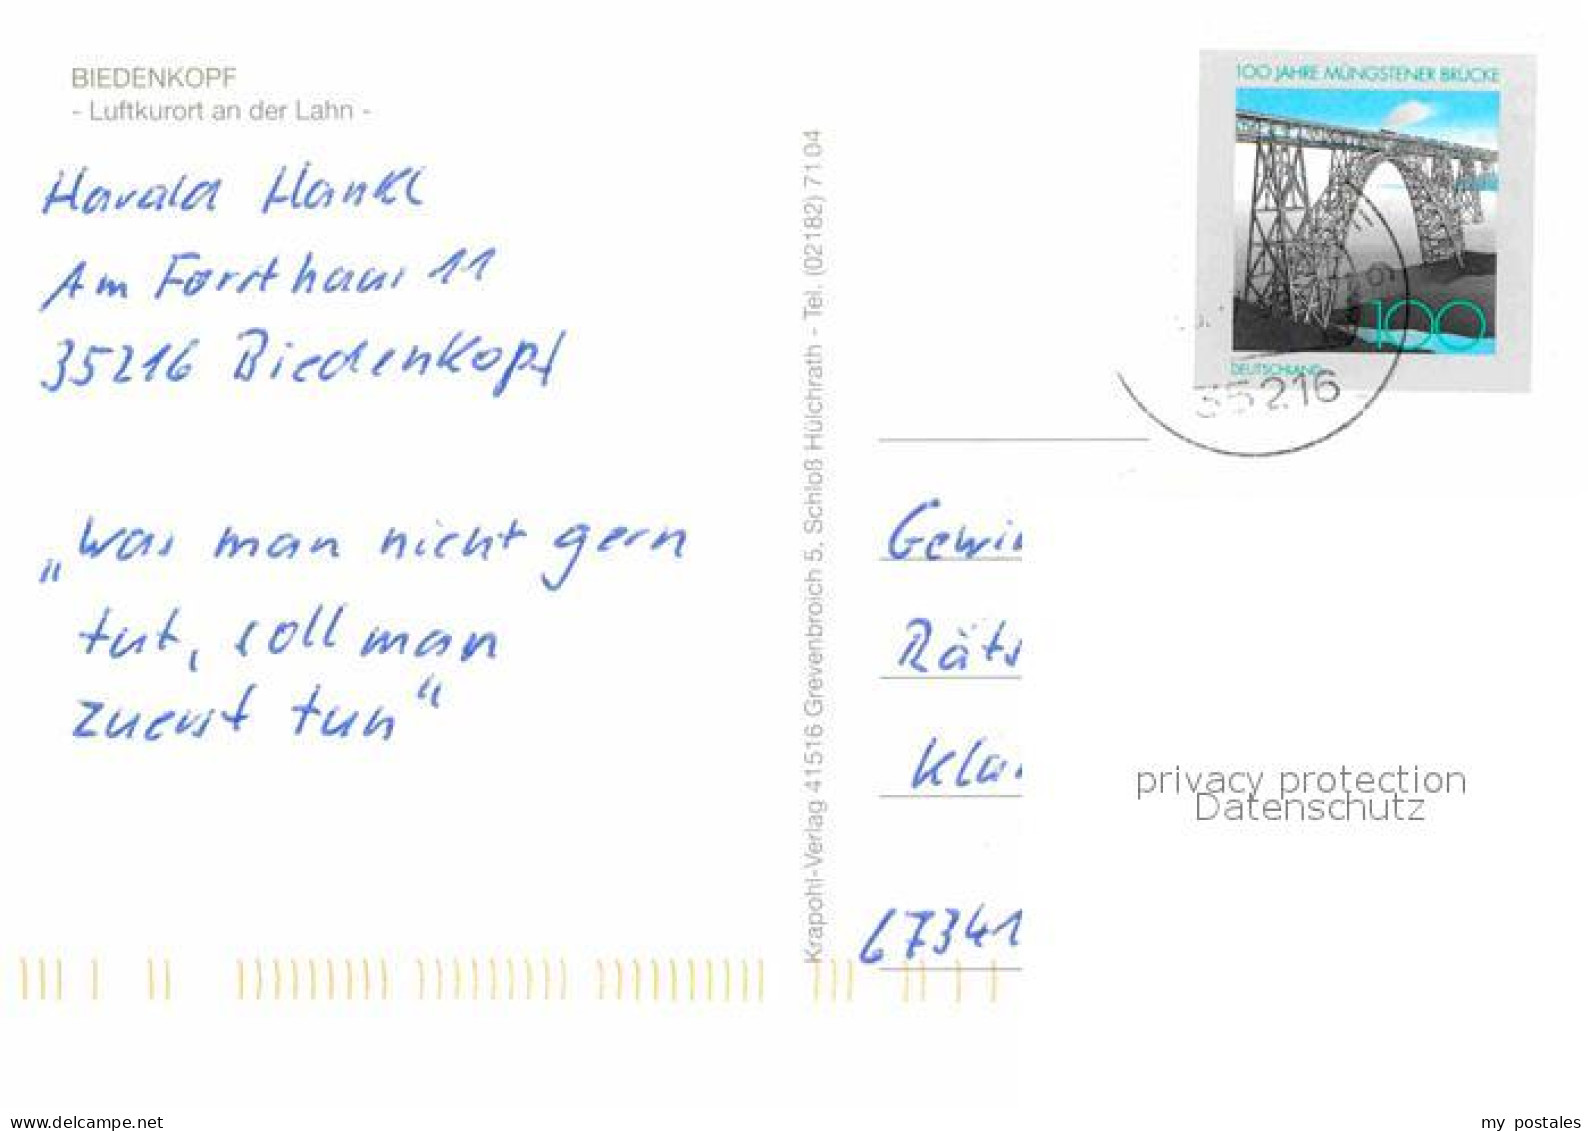 BIEDENKOPF
- Luftkurort an der Lahn -
Harald Hankl
Am Forsthaus 11
35216 Biedenkopf
„Was man nicht gern
tut, soll man
zuerst tun“
Krapohl-Verlag 41516 Grevenbroich 5, Schloß Hülchrath - Tel. (02182) 71 04
100 JAHRE MÜNGSTENER BRÜCKE
100
DEUTSCHLAND
35216
Gewi
Räts
Kla
67341
privacy protection
Datenschutz
www.delcampe.net
my_postales